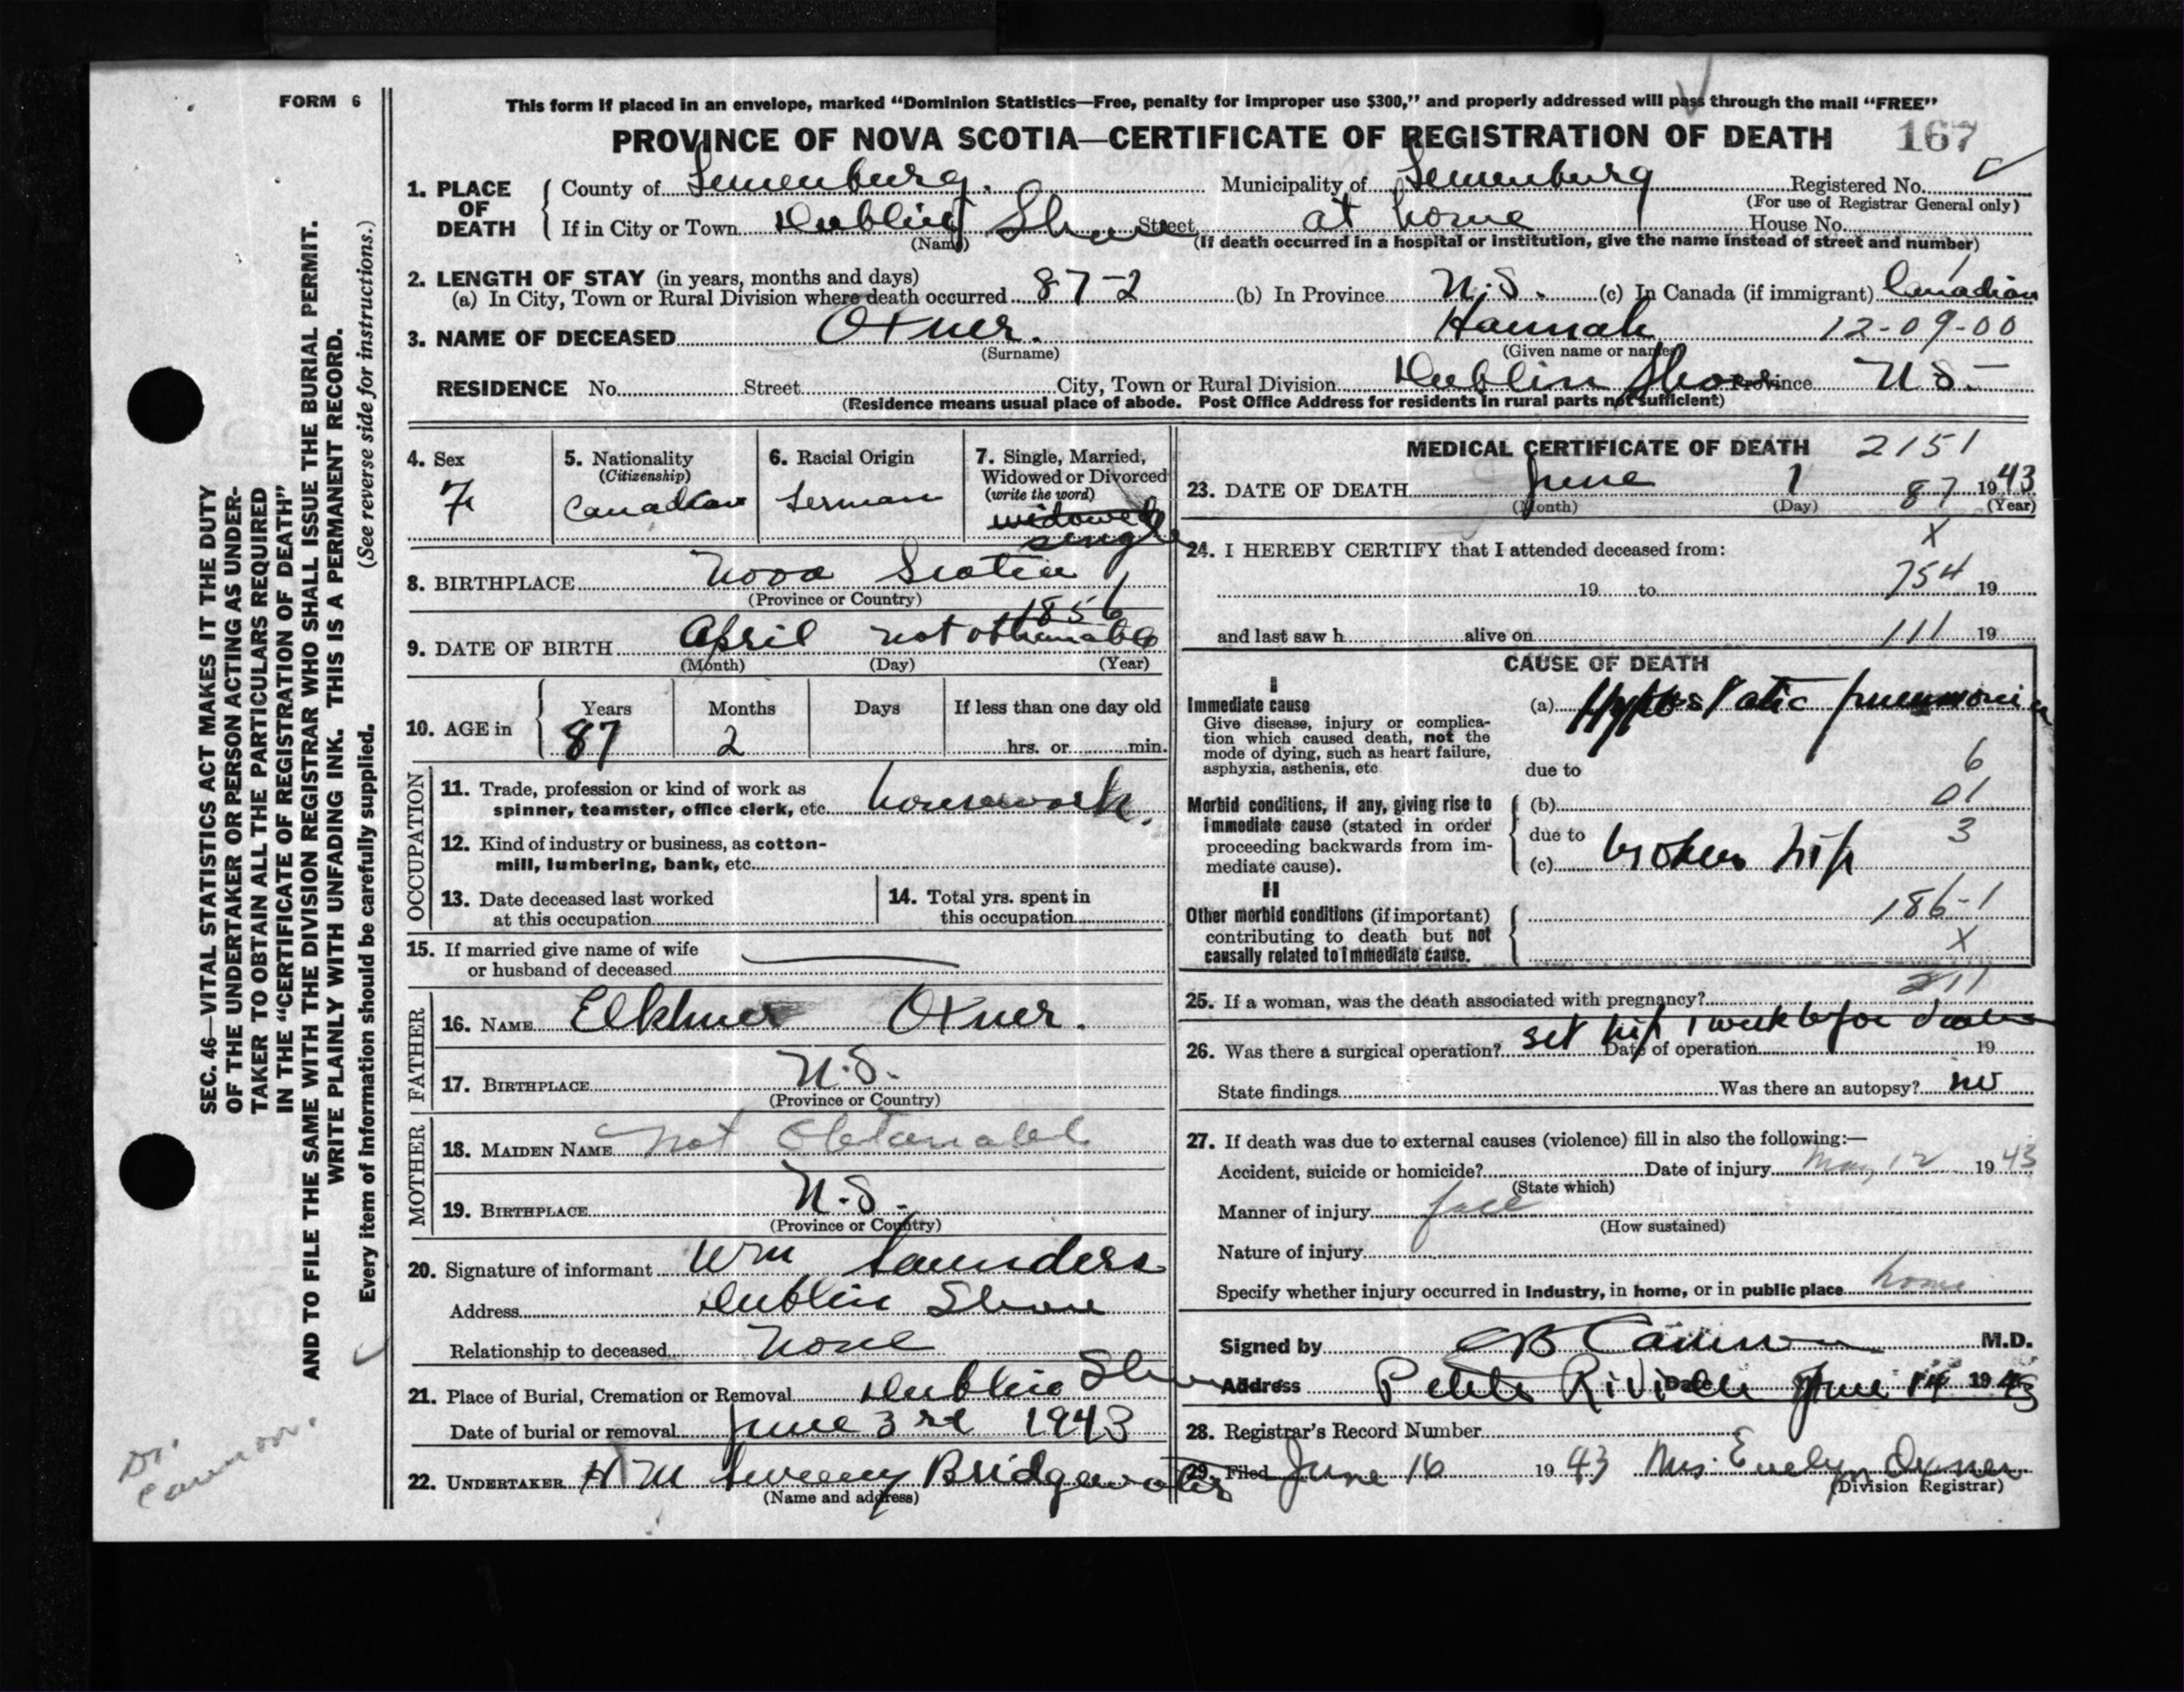 FORM 6
This form if placed in an envelope, marked “Dominion Statistics—Free, penalty for improper use $300,” and properly addressed will pass through the mail “FREE”
PROVINCE OF NOVA SCOTIA—CERTIFICATE OF REGISTRATION OF DEATH 167
1. PLACE OF DEATH County of Lunenburg. Municipality of Lunenburg Registered No.
(For use of Registrar General only)
If in City or Town Dublin Shore Street at home House No.
(Name) (If death occurred in a hospital or institution, give the name instead of street and number)
2. LENGTH OF STAY (in years, months and days)
(a) In City, Town or Rural Division where death occurred 87-2 (b) In Province N.S. (c) In Canada (if immigrant) Canadian
3. NAME OF DECEASED Oxner. Hannah 12-09-00
(Surname) (Given name or names)
RESIDENCE No. Street City, Town or Rural Division Dublin Shore Province N.S.
(Residence means usual place of abode. Post Office Address for residents in rural parts not sufficient)
4. Sex F
5. Nationality (Citizenship) Canadian
6. Racial Origin German
7. Single, Married, Widowed or Divorced (write the word) widowed single
8. BIRTHPLACE Nova Scotia
(Province or Country)
9. DATE OF BIRTH April not obtainable 1856
(Month) (Day) (Year)
10. AGE in Years 87 Months 2 Days If less than one day old
hrs. or min.
OCCUPATION
11. Trade, profession or kind of work as spinner, teamster, office clerk, etc. housework.
12. Kind of industry or business, as cotton-mill, lumbering, bank, etc.
13. Date deceased last worked at this occupation
14. Total yrs. spent in this occupation
15. If married give name of wife or husband of deceased
FATHER
16. NAME Oxner.
17. BIRTHPLACE N.S.
(Province or Country)
MOTHER
18. MAIDEN NAME not obtainable
19. BIRTHPLACE N.S.
(Province or Country)
20. Signature of informant Wm Saunders
Address Dublin Shore
Relationship to deceased None
21. Place of Burial, Cremation or Removal Dublin Shore
Date of burial or removal June 3rd 1943
22. UNDERTAKER H M Sweeny Bridgewater
(Name and address)
MEDICAL CERTIFICATE OF DEATH 2151
23. DATE OF DEATH June 1 87 1943
(Month) (Day) (Year)
24. I HEREBY CERTIFY that I attended deceased from: X
19 to 754 19
and last saw h alive on 111 19
CAUSE OF DEATH
I
Immediate cause
Give disease, injury or complication which caused death, not the mode of dying, such as heart failure, asphyxia, asthenia, etc.
(a) Hypostatic pneumonia
due to 6
Morbid conditions, if any, giving rise to immediate cause (stated in order proceeding backwards from immediate cause).
(b) 01
due to 3
(c) broken hip
II
Other morbid conditions (if important) contributing to death but not causally related to immediate cause.
186-1
X
25. If a woman, was the death associated with pregnancy?
26. Was there a surgical operation? set hip 1 week before death Date of operation 19
State findings Was there an autopsy? no
27. If death was due to external causes (violence) fill in also the following:—
Accident, suicide or homicide? Date of injury May 12 1943
(State which)
Manner of injury fall
(How sustained)
Nature of injury
Specify whether injury occurred in industry, in home, or in public place home
Signed by M.D.
Address Petite Riviere Date June 14 1943
28. Registrar’s Record Number
29. Filed June 16 1943 Mrs. Evelyn Oxner
(Division Registrar)
SEC. 46—VITAL STATISTICS ACT MAKES IT THE DUTY
OF THE UNDERTAKER OR PERSON ACTING AS UNDER-
TAKER TO OBTAIN ALL THE PARTICULARS REQUIRED
IN THE “CERTIFICATE OF REGISTRATION OF DEATH”
AND TO FILE THE SAME WITH THE DIVISION REGISTRAR WHO SHALL ISSUE THE BURIAL PERMIT.
WRITE PLAINLY WITH UNFADING INK. THIS IS A PERMANENT RECORD.
Every item of information should be carefully supplied. (See reverse side for instructions.)
Dr.